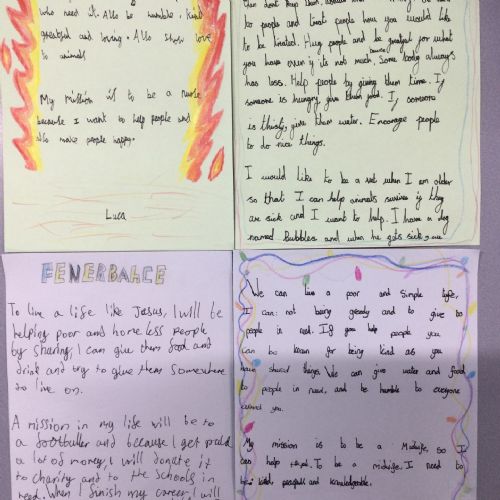 who need it. Also be humble, kind
greatful and loving. Also show love
to animals
My mission is to be a nurse
because I want to help people and
also make people happy.
Luca
to people and treat people how you would like
to be treated. Hug people and be greatful for what
you have even if its not much,
cause
Some body always
has less. Help people by giving them time. If
someone is hungry, give them food. If someone
is thirsty, give them water. Encourage people
to do nice things.
I would like to be a vet when I am older
so that I can help animals survive if they
are sick and I want to help. I have a dog
named Bubbles and when he gets sick, we
FENERBAHCE
To live a life like Jesus, I will be
helping poor and homeless people
by sharing, I can give them food and
drink and try to give them somewhere
to live on.
A mission in my life will be to
a footballer and because I get paid
a lot of money, I will donate it
to charity and to the schools in
need. When I finish my career, I will
We can live a poor and simple life,
I can not being greedy and to give to
people in need. If you help people you
can be known for being kind as you
have shared things. We can give water and food
to people in need, and be humble to everyone
around you.
My mission is to be a Midwife, so I
can help. To be a midwife, I need to
be kind, peacefull and knowledgeable.